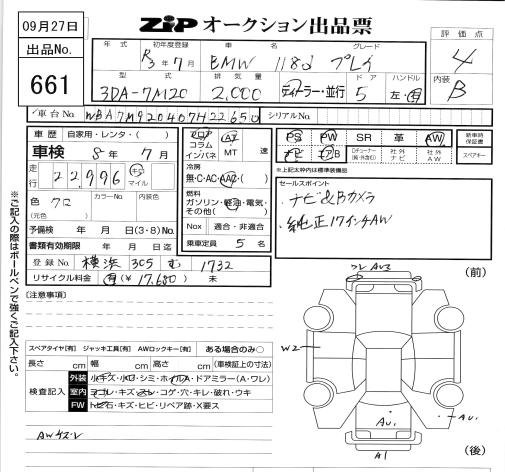 09月27日
出品No.
661
ZiP オークション出品票
評価点
4
内装
B
年式 初年度登録 車名 グレード
R3年7月 BMW 118d プレイ
型式 排気量 ドア ハンドル
3DA-7M20 2,000 ディーラー・並行 5 左・右
車台No. WBA7M920407H22650 シリアルNo.
車歴 自家用・レンタ・( )
車検 8年7月
走行 22,996 キロ マイル
色 クロ カラーNo. 内装色
(元色)
予備検 年 月 日(3・8)No.
書類有効期限 年 月 日迄
登録No. 横浜 305 む 1732
リサイクル料金 有(¥17,680) 未
フロア コラム インパネ AT MT 速
冷房
無・C・AC・AAC・( )
燃料
ガソリン・軽油・電気・その他( )
Nox 適合・非適合
乗車定員 5 名
PS PW SR 革 AW
ナビ エアB Dチューナー(純・外含む) 社外ナビ 社外AW
新車時保証書
スペアキー
*上記太枠内は標準装備品
セールスポイント
・ナビ&Bカメラ
・純正17インチAW
※ご記入の際はボールペンで強くご記入下さい。
[注意事項]
スペアタイヤ[有] ジャッキ工具[有] AWロックキー[有] ある場合のみ○
長さ cm 幅 cm 高さ cm (車検証上の寸法)
検査記入
外装 小キズ・小凹・シミ・ホイルA・ドアミラー(A・ワレ)
室内 ヨゴレ・キズ・スレ・コゲ・穴・キレ・破れ・ウキ
FW トビ石・キズ・ヒビ・リペア跡・X要ス
AWキズレ
(前)
W2
A1
A1
A1
(後)